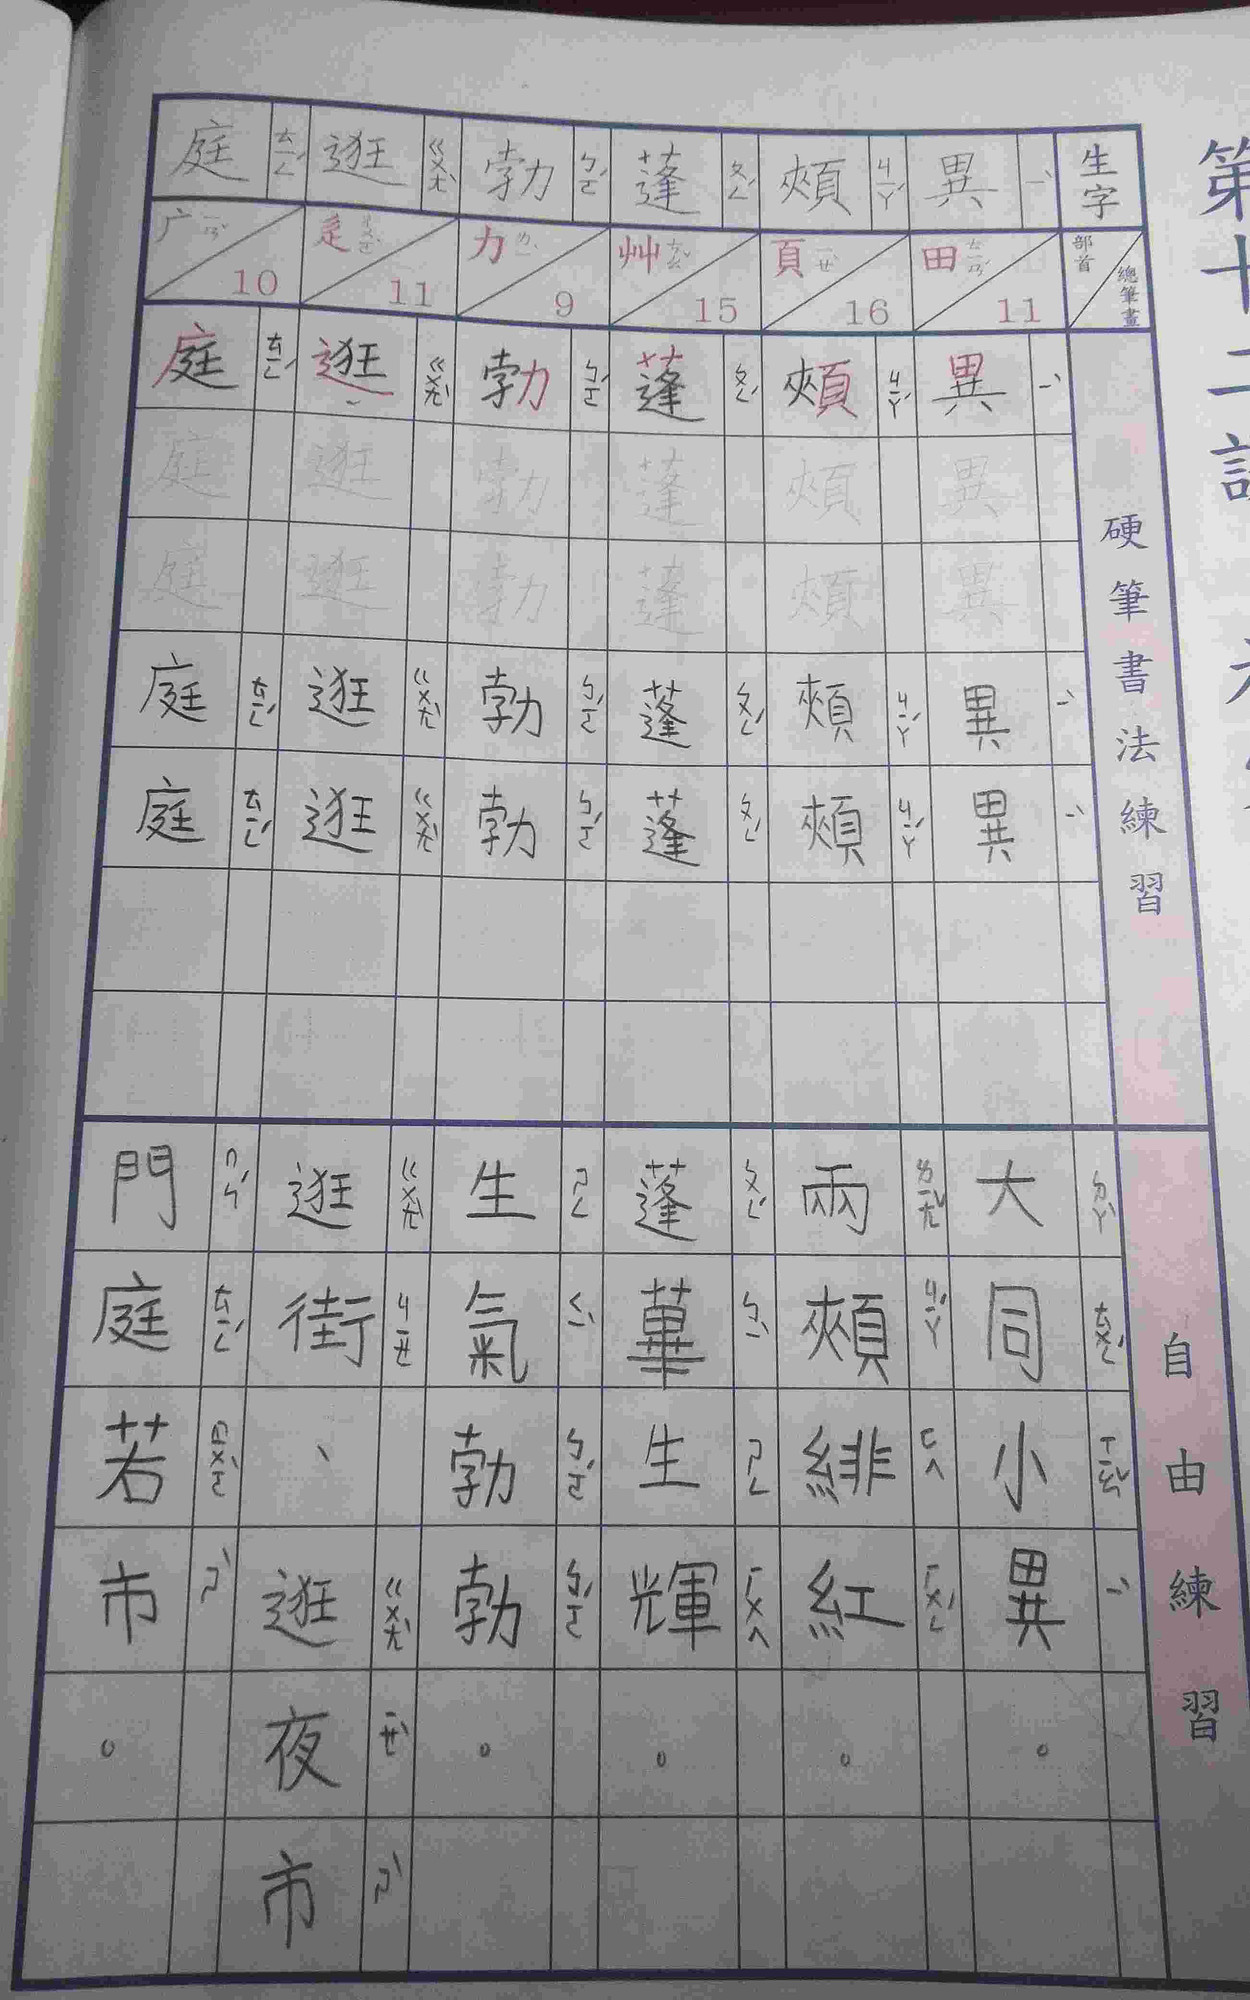 第十二課
生字
部首
總筆畫
硬筆書法練習
自由練習
異 ㄧˋ
田 ㄊㄧㄢˊ
11
異 ㄧˋ
異
異
異 ㄧˋ
異 ㄧˋ
大同小異。
ㄉㄚˋ ㄊㄨㄥˊ ㄒㄧㄠˇ ㄧˋ
頰 ㄐㄧㄚˊ
頁 ㄧㄝˋ
16
頰 ㄐㄧㄚˊ
頰
頰
頰 ㄐㄧㄚˊ
頰 ㄐㄧㄚˊ
兩頰緋紅。
ㄌㄧㄤˇ ㄐㄧㄚˊ ㄈㄟ ㄏㄨㄥˊ
蓬 ㄆㄥˊ
艸 ㄘㄠˇ
15
蓬 ㄆㄥˊ
蓬
蓬
蓬 ㄆㄥˊ
蓬 ㄆㄥˊ
蓬蓽生輝。
ㄆㄥˊ ㄅㄧˋ ㄕㄥ ㄏㄨㄟ
勃 ㄅㄛˊ
力 ㄌㄧˋ
9
勃 ㄅㄛˊ
勃
勃
勃 ㄅㄛˊ
勃 ㄅㄛˊ
生氣勃勃。
ㄕㄥ ㄑㄧˋ ㄅㄛˊ ㄅㄛˊ
逛 ㄍㄨㄤˋ
辵 ㄔㄨㄛˋ
11
逛 ㄍㄨㄤˋ
逛
逛
逛 ㄍㄨㄤˋ
逛 ㄍㄨㄤˋ
逛街、逛夜市
ㄍㄨㄤˋ ㄐㄧㄝ ㄍㄨㄤˋ ㄧㄝˋ ㄕˋ
庭 ㄊㄧㄥˊ
广 ㄧㄢˇ
10
庭 ㄊㄧㄥˊ
庭
庭
庭 ㄊㄧㄥˊ
庭 ㄊㄧㄥˊ
門庭若市。
ㄇㄣˊ ㄊㄧㄥˊ ㄖㄨㄛˋ ㄕˋ